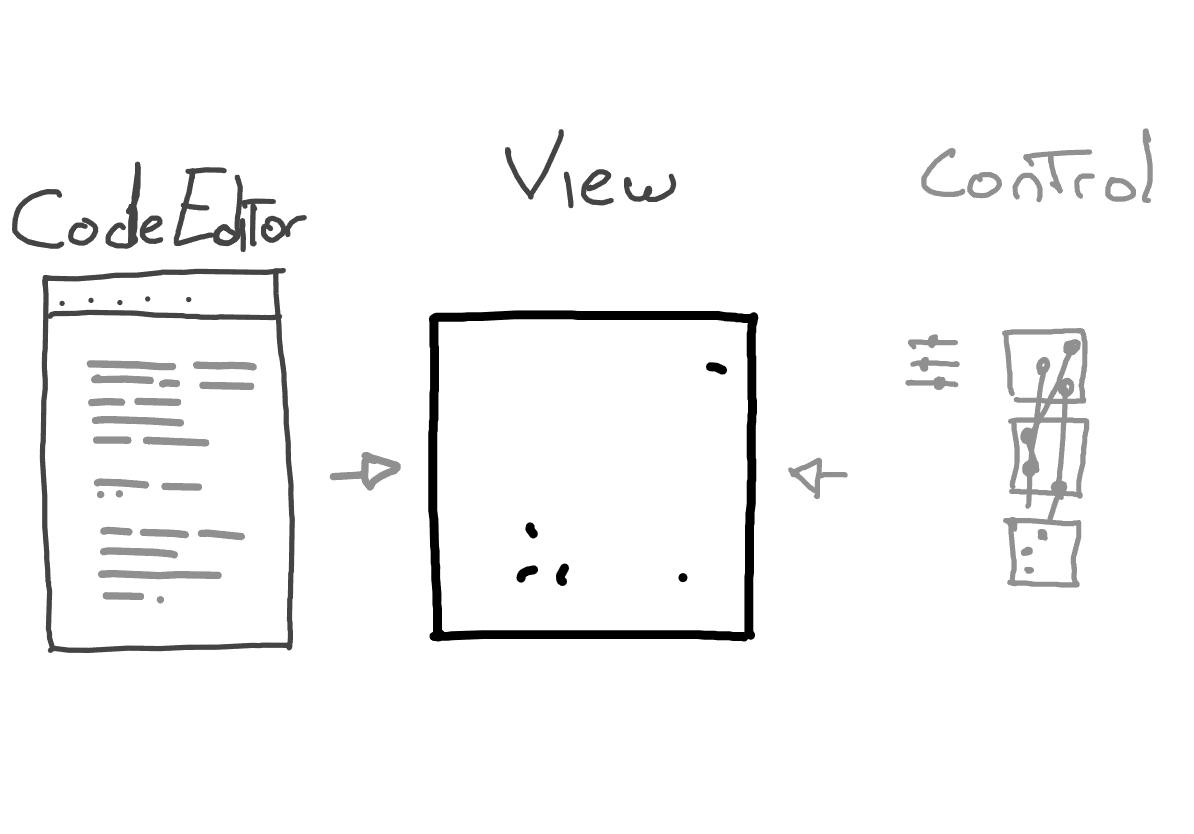 CodeEditor
View
Control